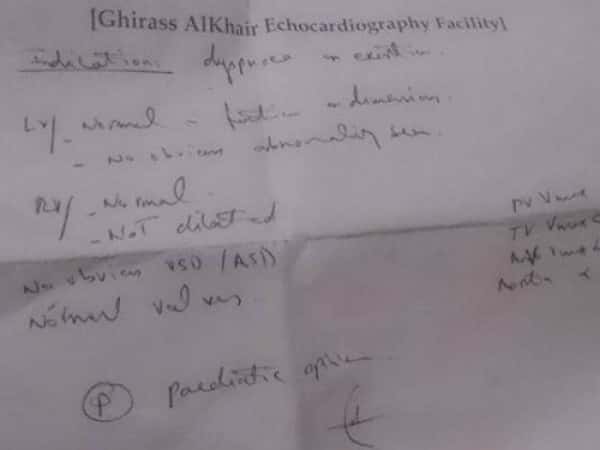 [Ghirass AlKhair Echocardiography Facility]
indication: dyspnoea on exertion.
LV/ - Normal - function on dimensions.
- No obvious abnormality seen.
RV/ - Normal.
- Not dilated
No obvious VSD / ASD
Normal valves.
PV Vmax
TV Vmax <
Vmax <
Aortic <
P paediatric opinion.